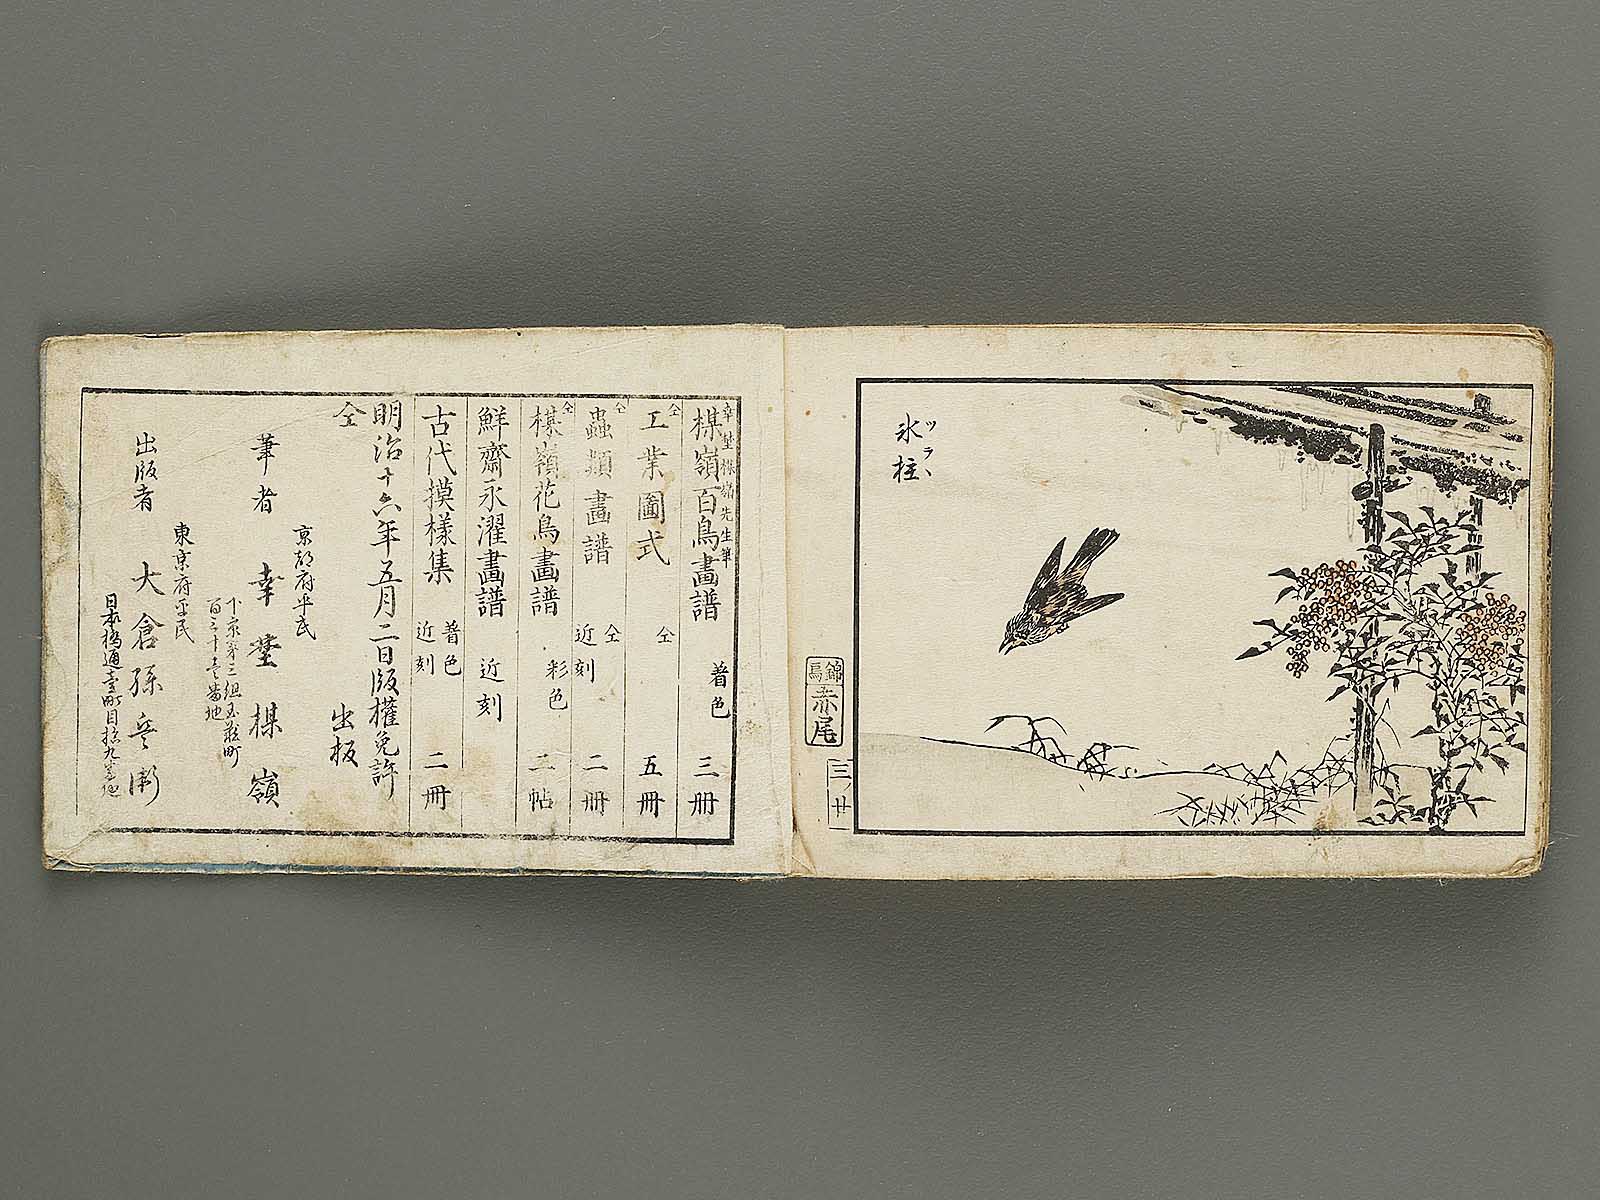 氷柱
ツラヽ
錦鳥
赤尾
三ノ廿
幸埜楳嶺先生筆
楳嶺百鳥畫譜 着色 三册
仝 工業圖式 仝 五册
仝 蟲類畫譜 仝 近刻 二册
仝 楳嶺花鳥畫譜 彩色 二帖
鮮齋永濯畫譜 近刻
古代摸樣集 着色 近刻 二册
明治十六年五月二日版權免許
仝 出板
京都府平民
筆者 幸埜楳嶺
下京第三組玉蔵町
百三十壱番地
東京府平民
出版者 大倉孫兵衛
日本橋通壹町目拾九番地